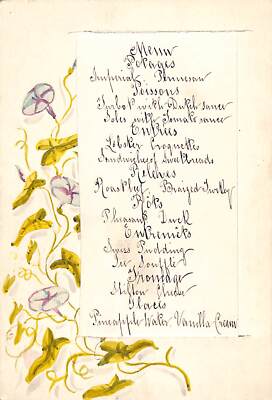 Menu
Potages
Imperial Parmesan
Poissons
Turbot with Dutch sauce
Soles with Tomato sauce
Entrées
Lobster Croquettes
Sandwiches of Sweetbreads
Relevés
Roast beef Braized Turkey
Rôts
Pheasant Duck
Entremêts
Snres Pudding
Ice Soufflé
Fromage
Stilton Cheese
Glaces
Pineapple Water Vanilla Cream